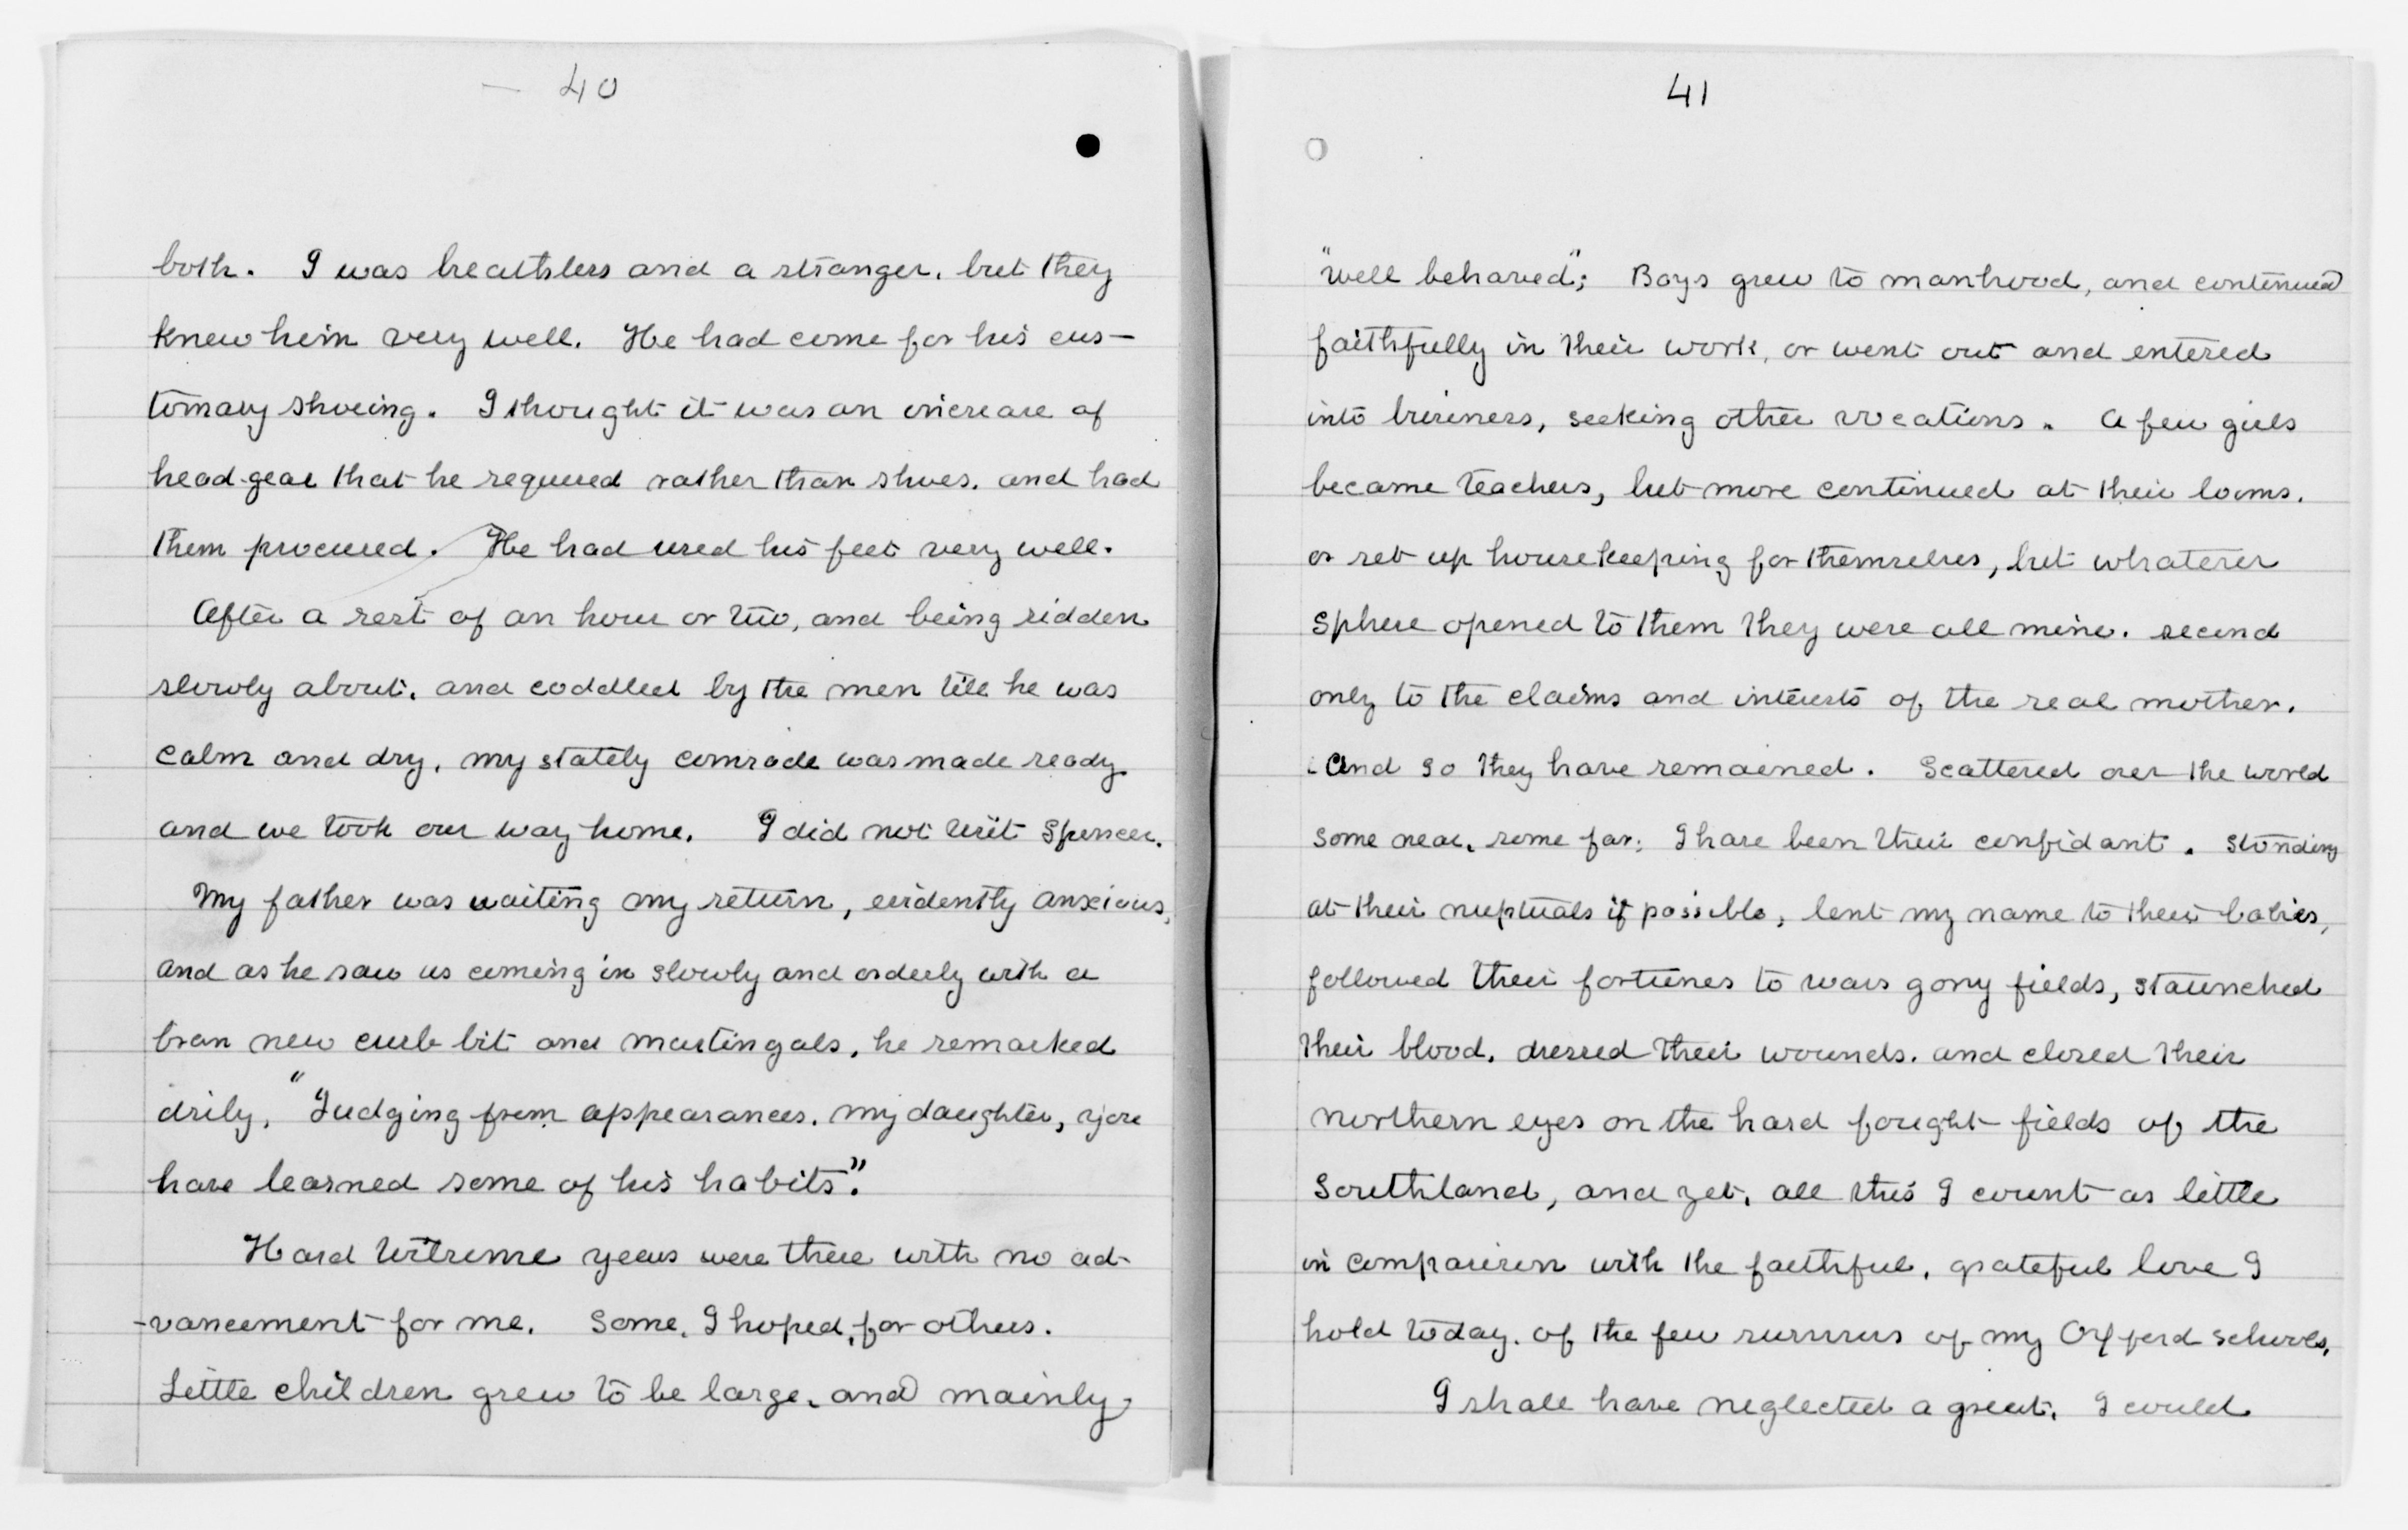 40
both. I was breathless and a stranger, but they
knew him very well. He had come for his cus-
tomary shoeing. I thought it was an increase of
head-gear that he required rather than shoes, and had
them procured. He had used his feet very well.
After a rest of an hour or two, and being ridden
slowly about, and coddled by the men till he was
calm and dry, my stately comrade was made ready
and we took our way home. I did not visit Spencer.
My father was waiting my return, evidently anxious,
and as he saw us coming in slowly and orderly with a
bran new curb bit and martingals, he remarked
drily, "Judging from appearances, my daughter, you
have learned some of his habits."
Hard tiresome years were these with no ad-
-vancement for me. Some, I hoped, for others.
Little children grew to be large, and mainly
41
"well behaved"; Boys grew to manhood, and continued
faithfully in their work, or went out and entered
into business, seeking other vocations. A few girls
became teachers, but more continued at their looms.
or set up housekeeping for themselves, but whatever
sphere opened to them they were all mine. second
only to the claims and interests of the real mother.
And so they have remained. Scattered over the world
some near, some far; I have been their confidant. Standing
at their nuptuals if possible, lent my name to their babies,
followed their fortunes to wars gory fields, staunched
their blood, dressed their wounds. and closed their
northern eyes on the hard fought fields of the
Southland, and yet, all this I count as little
in comparison with the faithful, grateful love I
hold today. of the few survivors of my Oxford schools.
I shall have neglected a great, I could